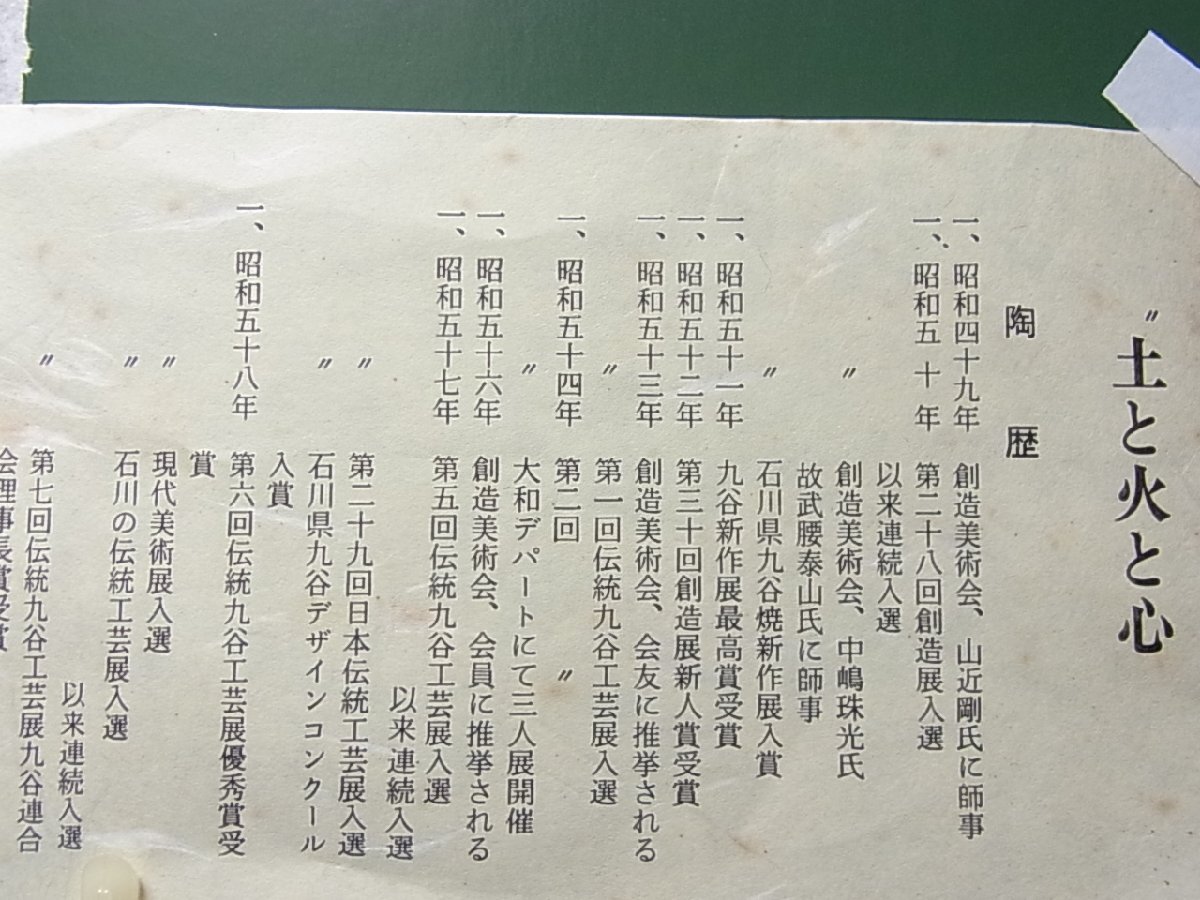 〝土と火と心
陶歴
一、昭和四十九年 創造美術会、山近剛氏に師事
一、昭和五十年 第二十八回創造展入選
以来連続入選
〃 創造美術会、中嶋珠光氏
故武腰泰山氏に師事
〃 石川県九谷焼新作展入賞
一、昭和五十一年 九谷新作展最高賞受賞
一、昭和五十二年 第三十回創造展新人賞受賞
一、昭和五十三年 創造美術会、会友に推挙される
〃 第一回伝統九谷工芸展入選
一、昭和五十四年 第二回 〃
〃 大和デパートにて三人展開催
一、昭和五十六年 創造美術会、会員に推挙される
一、昭和五十七年 第五回伝統九谷工芸展入選
以来連続入選
〃 第二十九回日本伝統工芸展入選
〃 石川県九谷デザインコンクール
入賞
一、昭和五十八年 第六回伝統九谷工芸展優秀賞受
賞
〃 現代美術展入選
〃 石川の伝統工芸展入選
以来連続入選
〃 第七回伝統九谷工芸展九谷連合
会理事長賞受賞